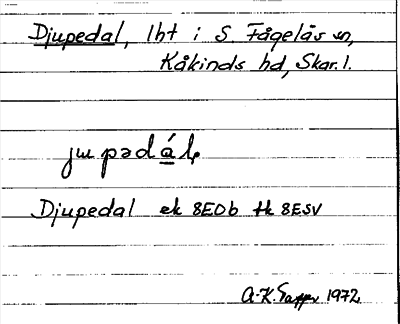 Djupedal, lht i S. Fågelås sn,
Kåkinds hd, Skar. l.
ju pədál
Djupedal ek 8EDb tk 8ESV
1972